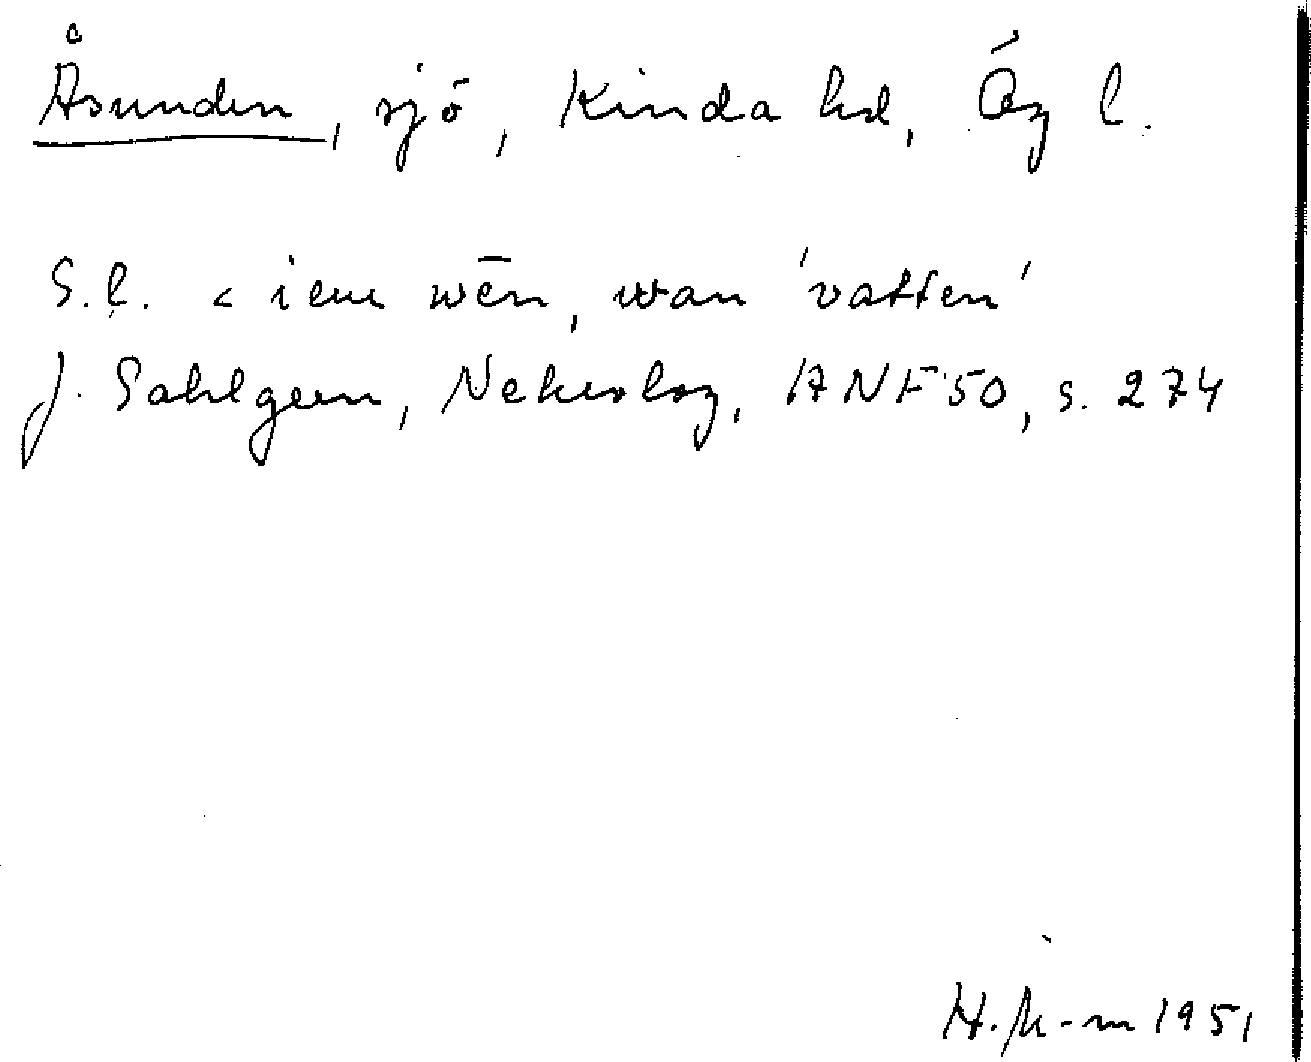 Åsunden, sjö, Kinda hd, Ög l.
S.l. < ieur wēn, wan 'vatten'
J. Sahlgren, Nekrolog, ANF 50, s. 274
1951